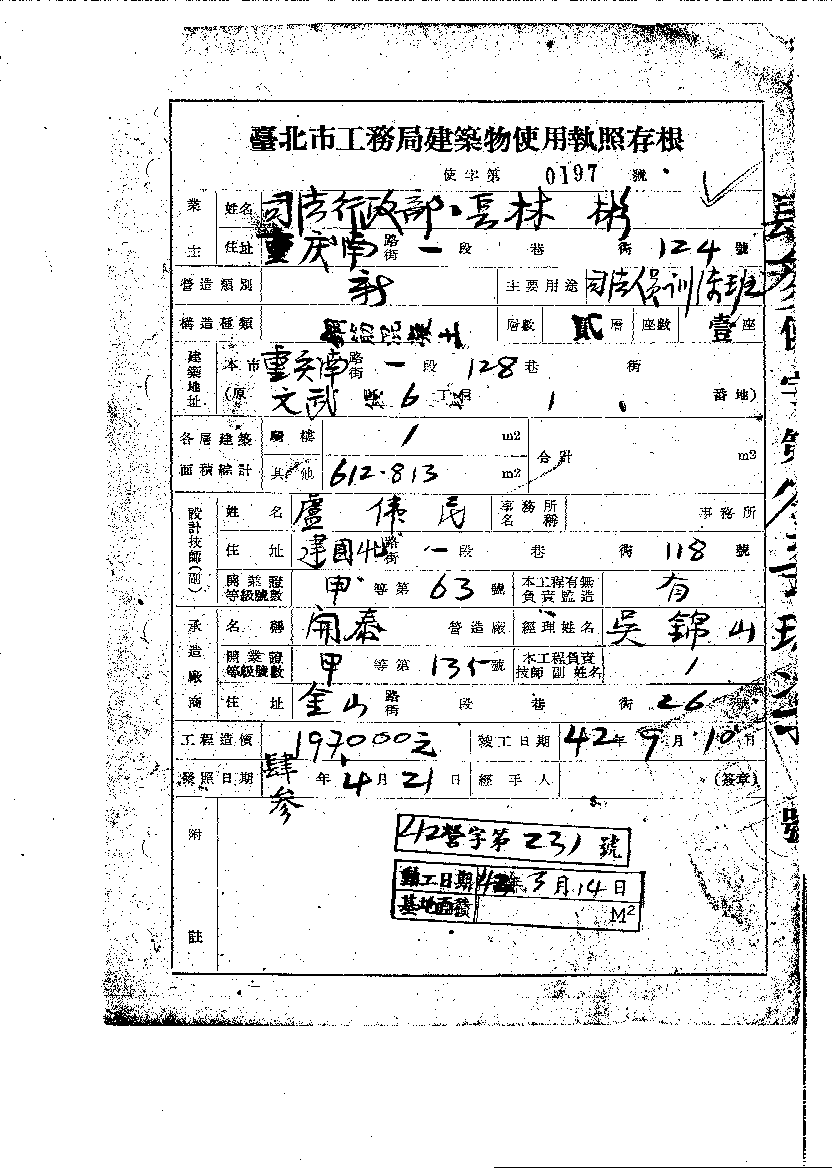 臺北市工務局建築物使用執照存根
使字第 0197 號
業主 姓名 司法行政部 林 彬
住址 重庆南 路街 一 段 巷 衖 124 號
營造類別 新 主要用途 司法
構造種類 鋼筋混凝土 層數 貳 層 座數 壹 座
建築地址 本市 重庆南 路街 一 段 128 巷 衖
(原 文武 6 1 番地)
各層建築面積總計 騎樓 1 m2 合計 m2
其他 612.813 m2
設計技師(副) 姓名 盧 民 事務所名稱 事務所
住址 建國北 路街 一 段 巷 衖 118 號
開業證等級號數 甲 等第 63 號 本工程有無負責監造 有
承造廠商 名稱 開泰 營造廠 經理姓名 吳錦山
開業證等級號數 甲 等第 135 號 本工程負責技師副姓名 /
住址 金山 路街 段 巷 衖 26 號
工程造價 197000元 竣工日期 42年 9月 10日
發照日期 肆参 年 4 月 21 日 經手人 (簽章)
附註
營字第 231 號
動工日期 42年 3月 14日
基地面積 M²
號